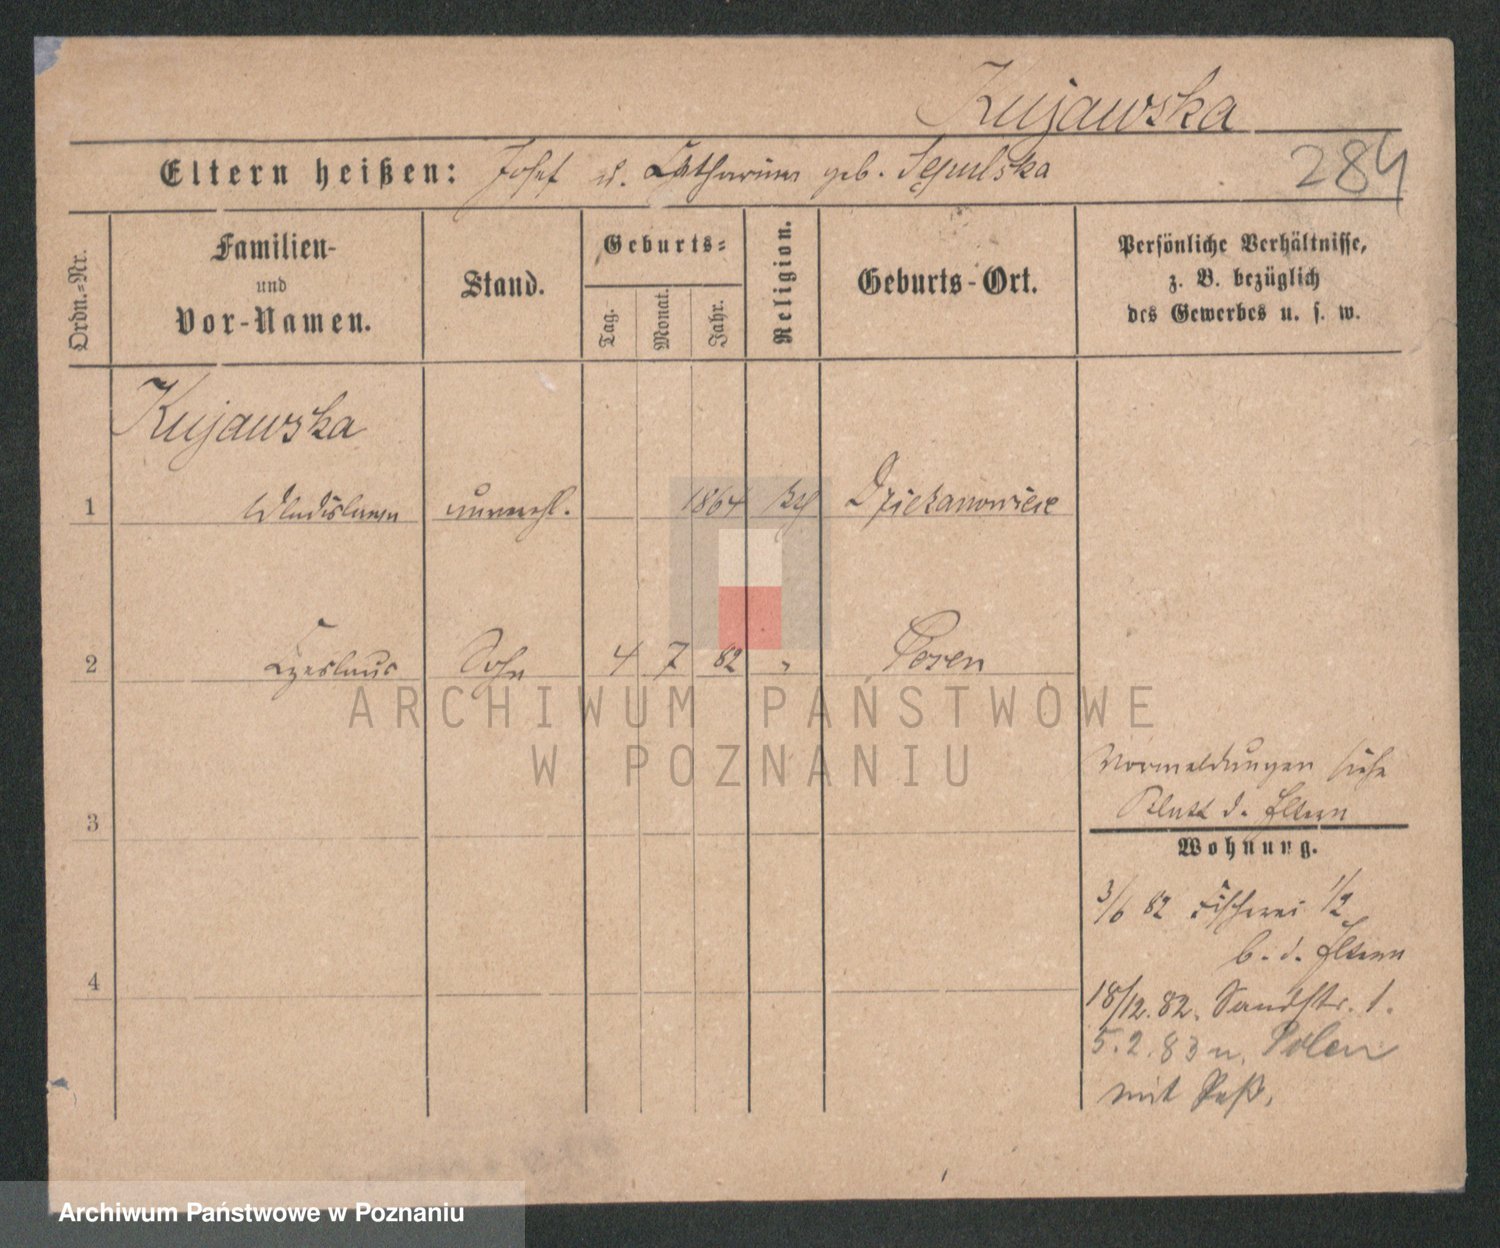 Kujawska
284
Eltern heißen: Josef u. Catharina geb. Sepulska
Ordn.-Nr.
Familien-
und
Vor-Namen.
Stand.
Geburts-
Tag.
Monat.
Jahr.
Religion.
Geburts-Ort.
Persönliche Verhältnisse,
z. B. bezüglich
des Gewerbes u. s. w.
Kujawska
1 Wladislawa unverehl. 1864 kth Dziekanowice
2 Czeslaus Sohn 4 7 82 " Posen
ARCHIWUM PAŃSTWOWE
W POZNANIU
Vormeldungen siehe
Blatt d. Eltern
3
Wohnung.
3/6 82 Fischerei 1/2
b. d. Eltern
4
18/12. 82. Sandstr. 1.
5. 2. 83 n. Polen
mit Paß.
Archiwum Państwowe w Poznaniu